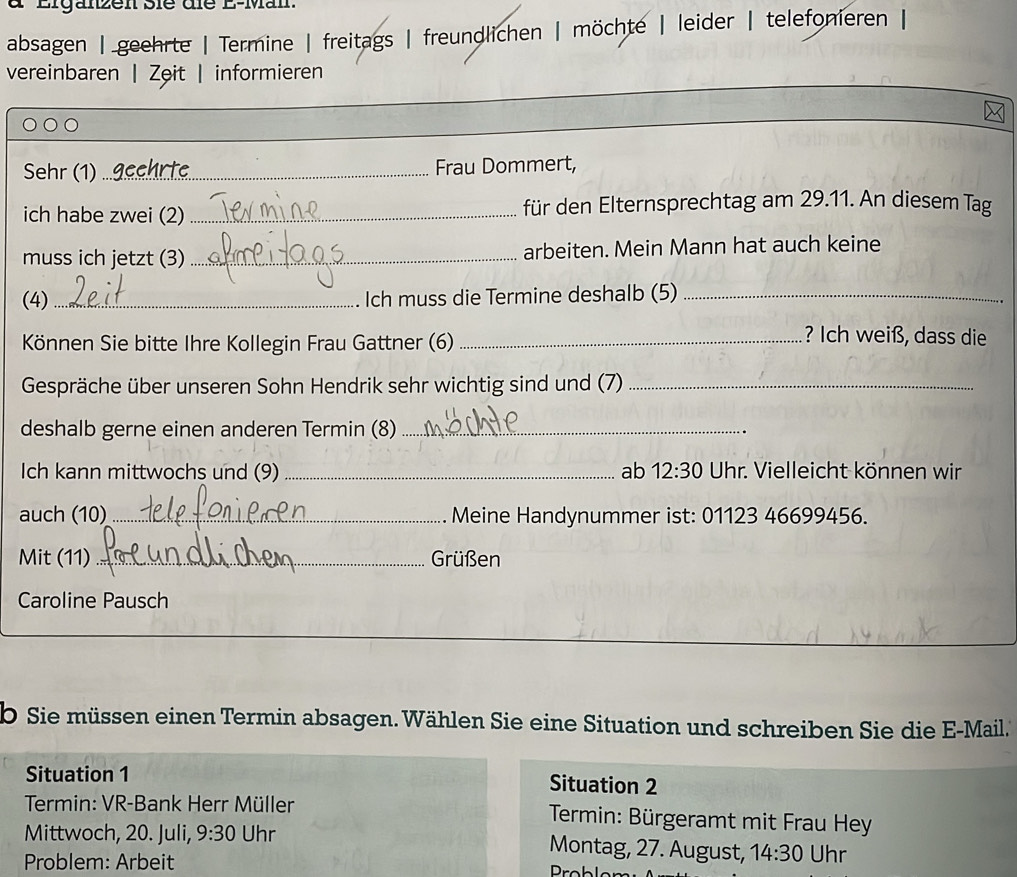 a Ergänzen Sie die E-Mail.
absagen | geehrte | Termine | freitags | freundlichen | möchte | leider | telefonieren |
vereinbaren | Zeit | informieren
Sehr (1) geehrte Frau Dommert,
ich habe zwei (2) Termine für den Elternsprechtag am 29.11. An diesem Tag
muss ich jetzt (3) freitags arbeiten. Mein Mann hat auch keine
(4) Zeit. Ich muss die Termine deshalb (5) .
Können Sie bitte Ihre Kollegin Frau Gattner (6) ? Ich weiß, dass die
Gespräche über unseren Sohn Hendrik sehr wichtig sind und (7)
deshalb gerne einen anderen Termin (8) möchte.
Ich kann mittwochs und (9) ab 12:30 Uhr. Vielleicht können wir
auch (10) telefonieren. Meine Handynummer ist: 01123 46699456.
Mit (11) freundlichen Grüßen
Caroline Pausch
b Sie müssen einen Termin absagen. Wählen Sie eine Situation und schreiben Sie die E-Mail.
Situation 1
Termin: VR-Bank Herr Müller
Mittwoch, 20. Juli, 9:30 Uhr
Problem: Arbeit
Situation 2
Termin: Bürgeramt mit Frau Hey
Montag, 27. August, 14:30 Uhr
Problem: